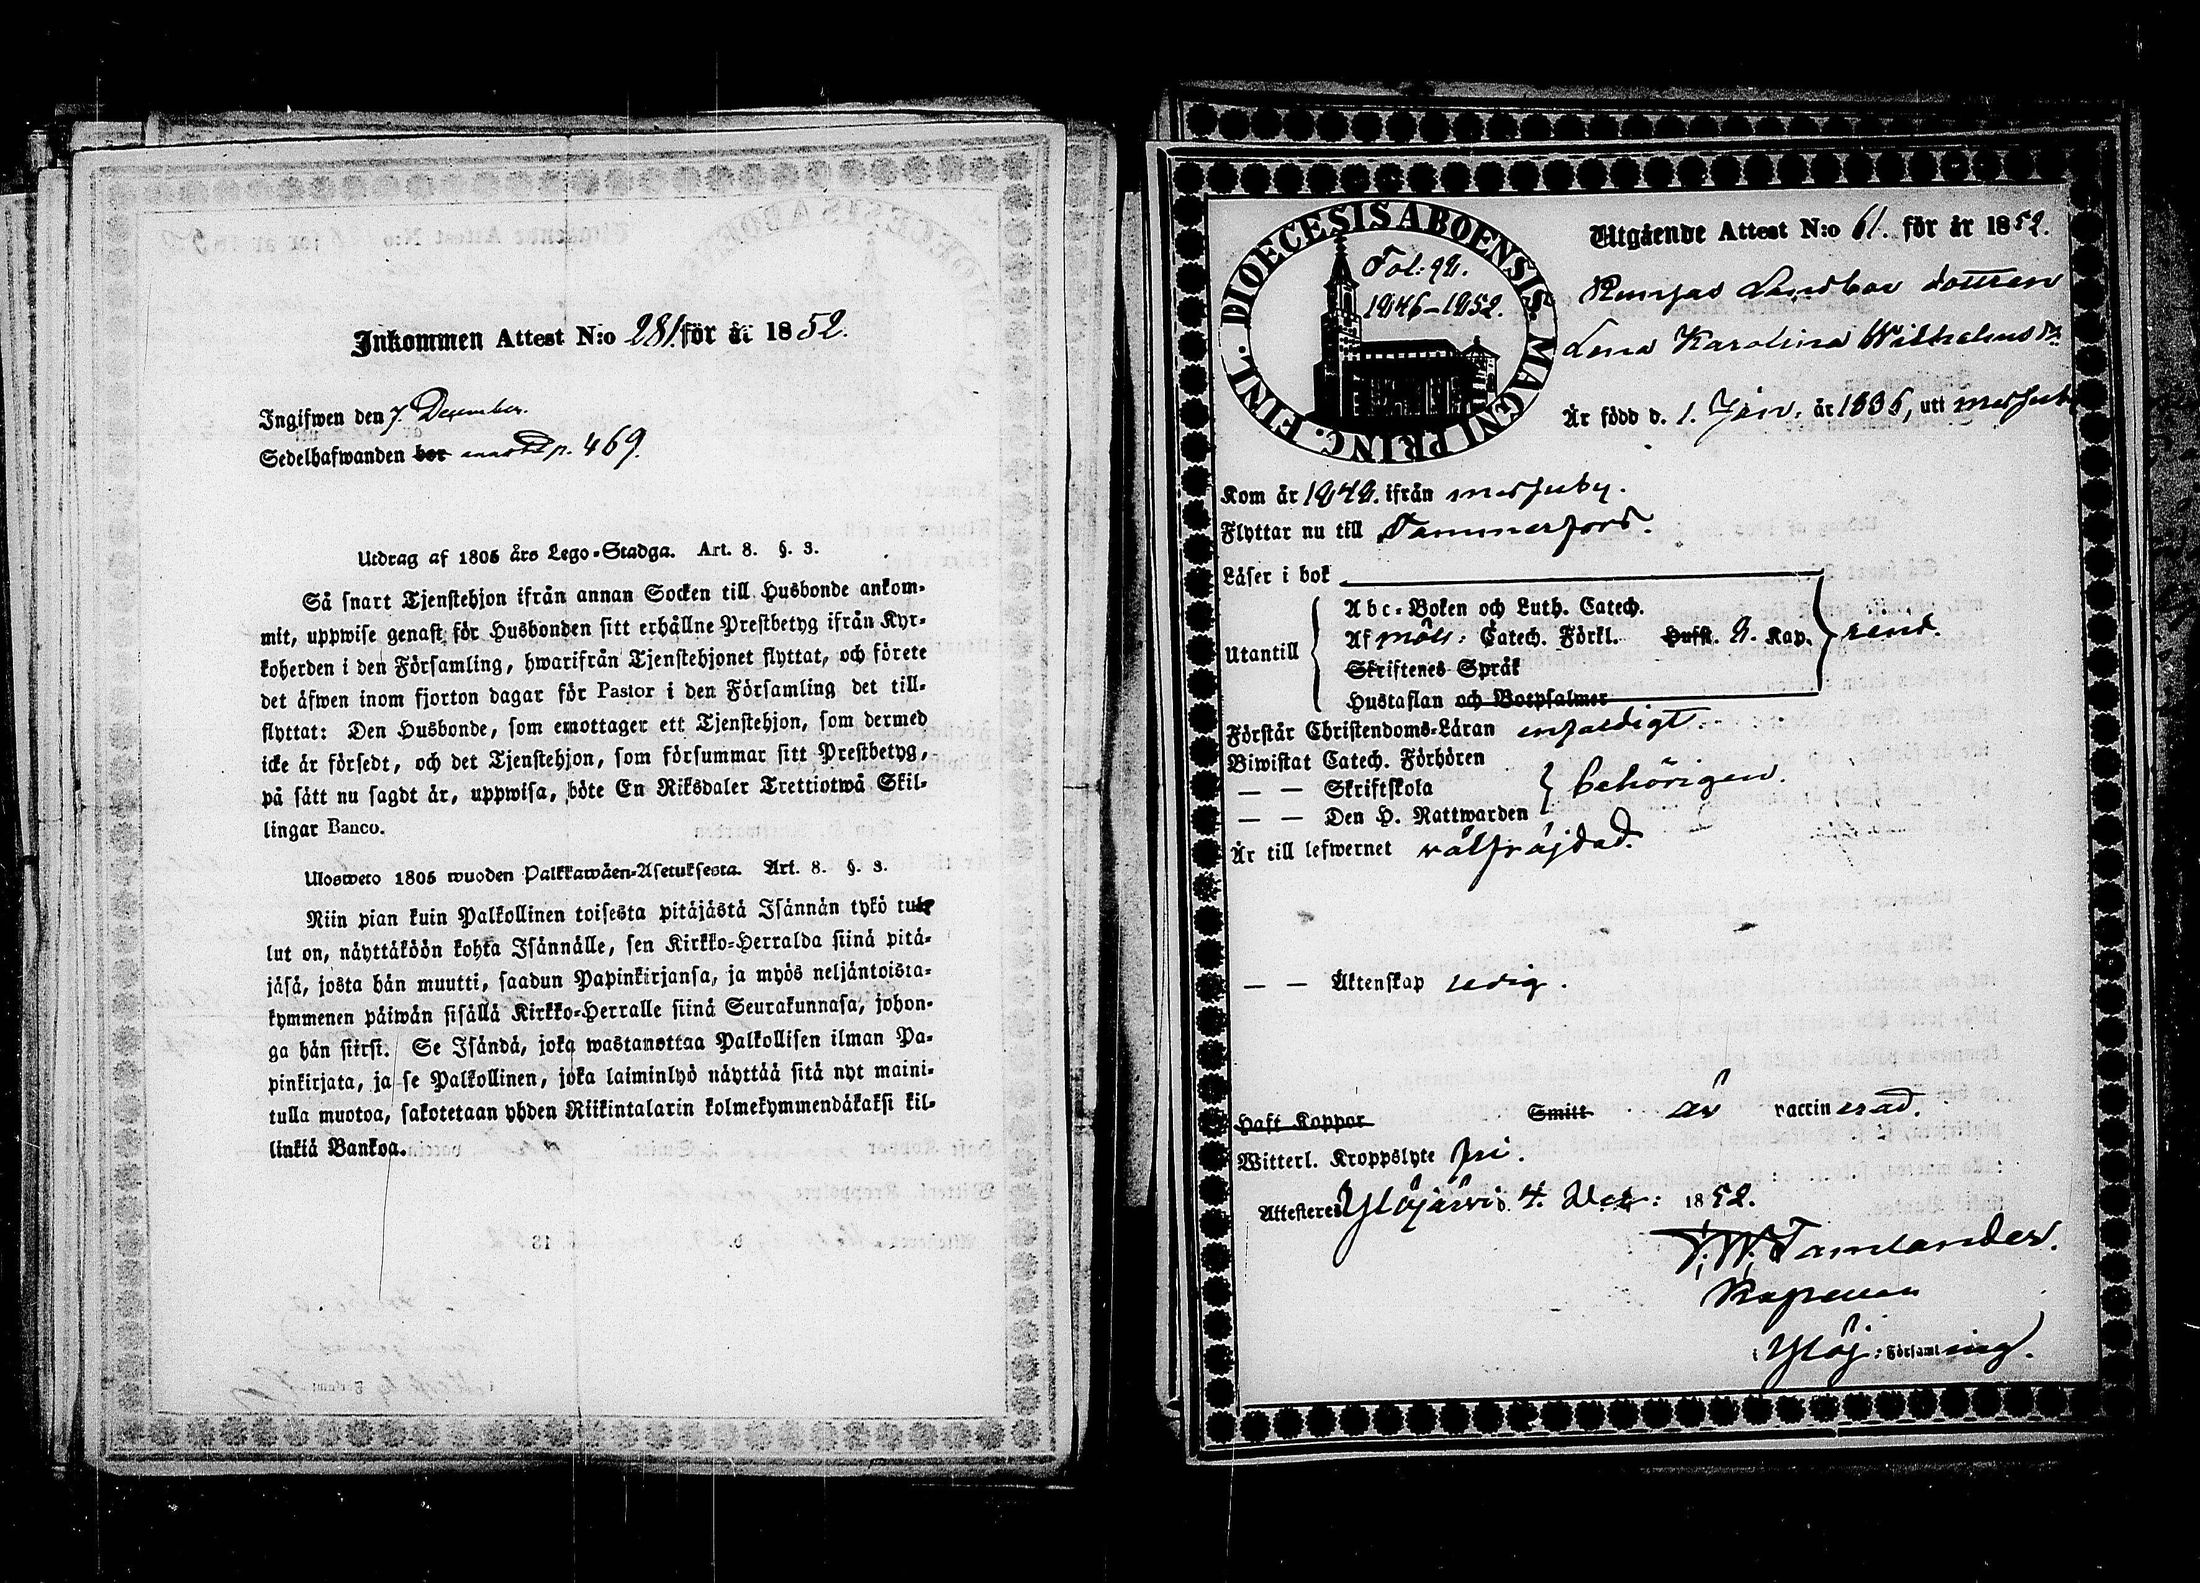 Inkommen Attest N:o 281. för år 1852.
Ingifwen den 7. December.
Sedelhafwanden bor p. 469.
Utdrag af 1805 års Lego-Stadga. Art. 8. §. 3.
Så snart Tjenstehjon ifrån annan Socken till Husbonde ankom-
mit, uppwise genast för Husbonden sitt erhållne Prestbetyg ifrån Kyr-
koherden i den Församling, hwarifrån Tjenstehjonet flyttat, och förete
det äfwen inom fjorton dagar för Pastor i den Församling det till-
flyttat: Den Husbonde, som emottager ett Tjenstehjon, som dermed
icke är försedt, och det Tjenstehjon, som försummar sitt Prestbetyg,
på sätt nu sagdt är, uppwisa, böte En Riksdaler Trettiotwå Skil-
lingar Banco.
Ulosweto 1805 wuoden Palkkawäen-Asetuksesta. Art. 8. §. 3.
Niin pian kuin Palkollinen toisesta pitäjästä Isännän tykö tul-
lut on, näyttäköön kohta Isännälle, sen Kirkko-Herralda siinä pitä-
jäsä, josta hän muutti, saadun Papinkirjansa, ja myös neljäntoista-
kymmenen päiwän sisällä Kirkko-Herralle siinä Seurakunnasa, johon-
ga hän siirsi. Se Isändä, joka wastanottaa Palkollisen ilman Pa-
pinkirjata, ja se Palkollinen, joka laiminlyö näyttää sitä nyt maini-
tulla muotoa, sakotetaan yhden Riikintalarin kolmekymmendäkaksi kil-
linkiä Bankoa.
DIOECESIS ABOENSIS. MAGNI PRINC. FINL.
Fol: 92.
1846-1852.
Utgående Attest N:o 61. för år 1852.
Landbou dottren
Lena Karolina Wilhelms dr
Är född d. 1. Jan. år 1836, uti
Kom år 1842. ifrån
Flyttar nu till Tammerfors.
Läser i bok
Utantill
Abc-Boken och Luth. Catech.
Af Catech. Förkl. Husft. 2. Kap. rend.
Skriftenes Språk
Hustaflan och Botpsalmer
Förstår Christendoms-Läran enfaldigt.
Biwistat Catech. Förhören
— — Skriftskola behörigen.
— — Den H. Nattwarden
Är till lefwernet välfräjdad.
— — Äktenskap ledig.
Haft Koppor Smitt är vaccinerad.
Witterl. Kroppslyte fri.
Attesteres Ylöjärvi d. 4. Dec: 1852.
T. W. Tamlander.
Kapellan
i Ylöj: Församling.